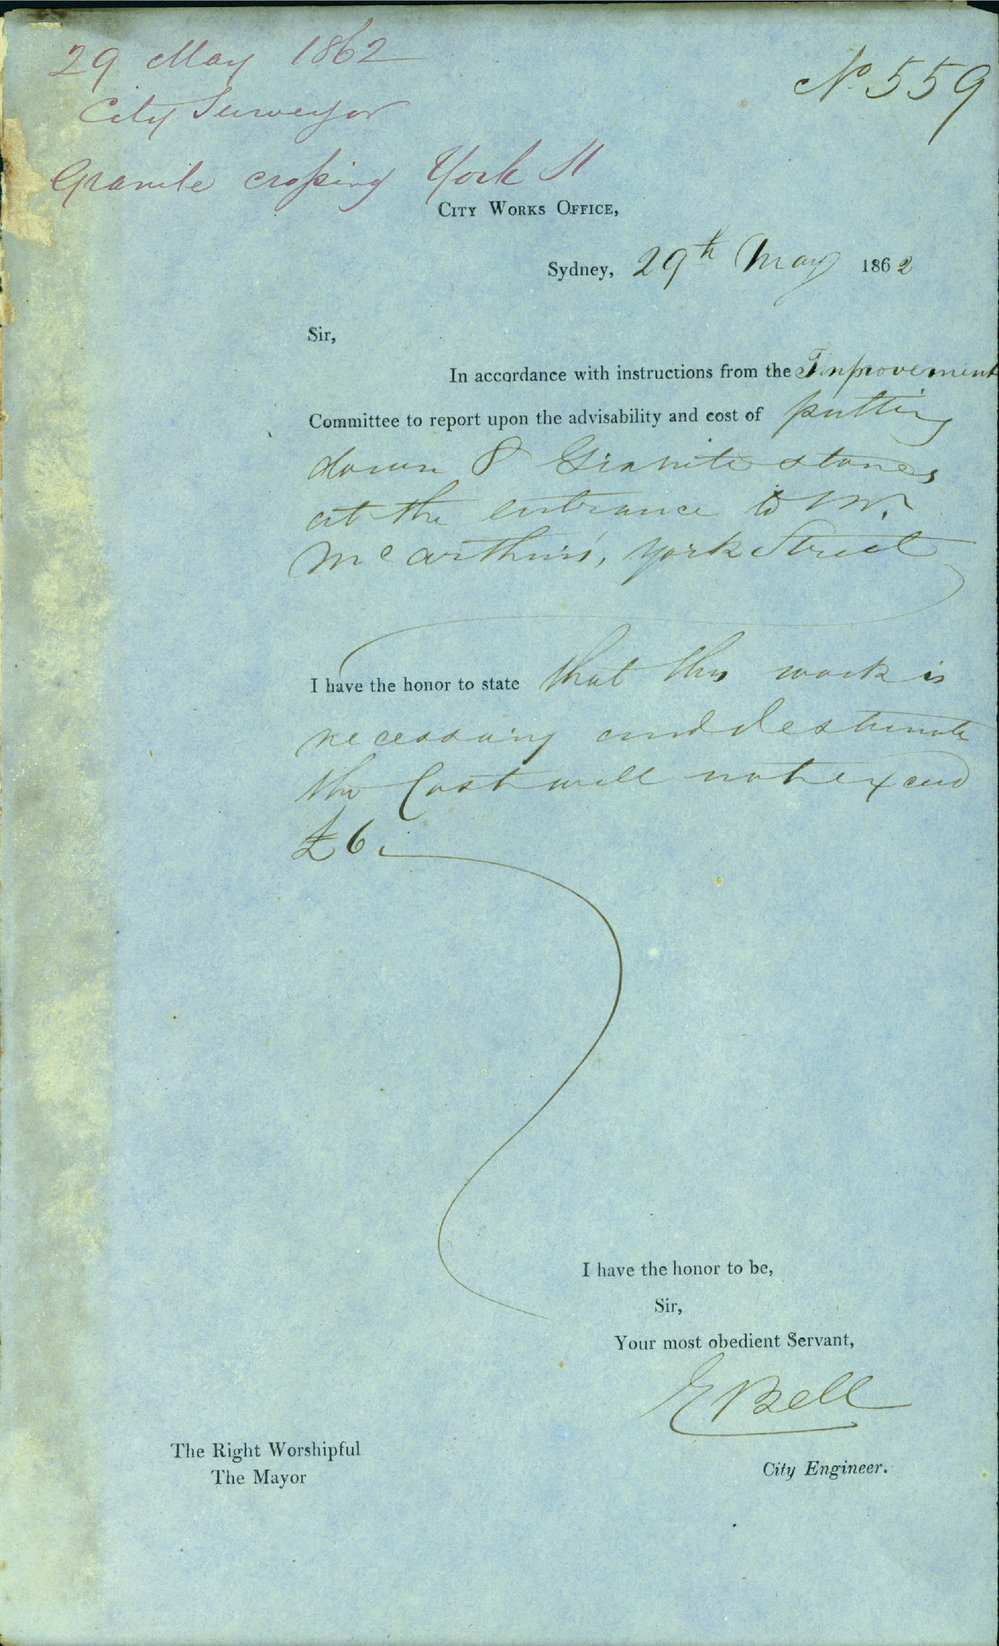 29 May 1862
City Surveyor
Granite crossing York St
No. 559
CITY WORKS OFFICE,
Sydney, 29th May 1862
Sir,
In accordance with instructions from the Improvement
Committee to report upon the advisability and cost of putting
down 8 Granite stones
at the entrance to Mr.
McArthurs', York Street
I have the honor to state that this work is
necessary and I estimate
the Cost will not exceed
£6.
I have the honor to be,
Sir,
Your most obedient Servant,
E Bell
City Engineer.
The Right Worshipful
The Mayor